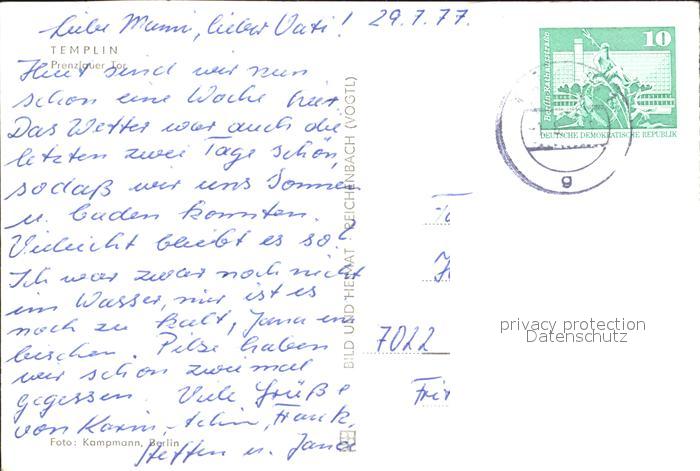 Liebe Mami, lieber Vati! 29.7.77.
TEMPLIN
Prenzlauer Tor
Heut sind wir nun
schon eine Woche hier.
Das Wetter war auch die
letzten zwei Tage schön,
sodaß wir uns Sonnen
u. baden konnten.
Vielleicht bleibt es so!
Ich war zwar noch nicht
im Wasser, mir ist es
noch zu kalt, Jana ein
bischen. Pilze haben
wir schon zweimal
gegessen. Viele Grüße
von Karin, Frank,
Steffen u. Jana
Foto: Kampmann, Berlin
BILD UND HEIMAT REICHENBACH (VOGTL)
10
Berlin-Rathausstraße
DEUTSCHE DEMOKRATISCHE REPUBLIK
g
7022
privacy protection
Datenschutz